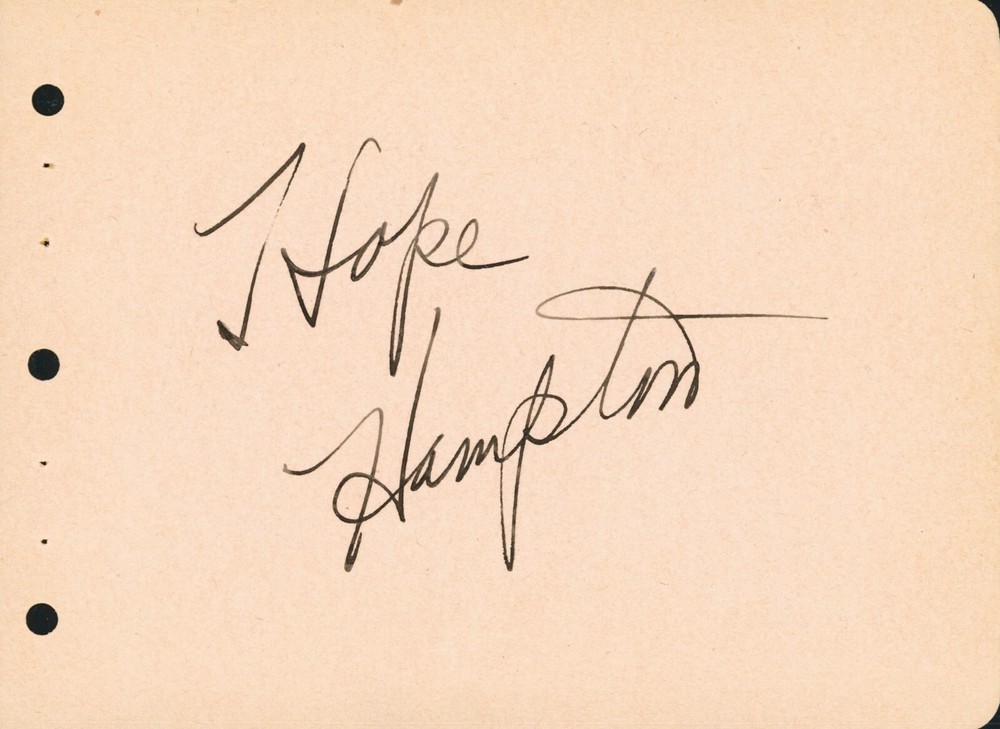 Hope
Hampton